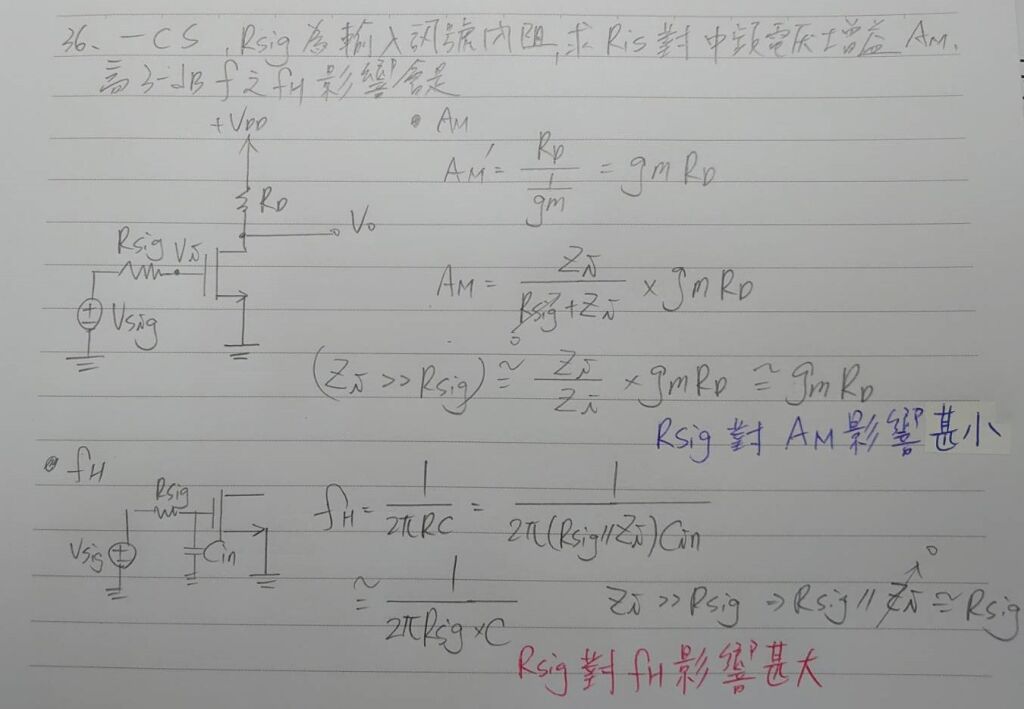 36、一CS,Rsig為輸入訊號內阻,求Ris對中頻電压增益AM,
高3-dB f之fH影響會是
+VDD
• AM
AM' = RD / (1/gm) = gm RD
RD
Vo
Rsig Vi
Vsig
AM = Zi / (Rsig + Zi) × gm RD
0
(Zi >> Rsig) ≅ Zi / Zi × gm RD ≅ gm RD
Rsig 對 AM 影響甚小
• fH
Rsig
Vsig
Cin
fH = 1 / 2πRC = 1 / 2π(Rsig//Zi)Cin
≅ 1 / 2πRsig×C
0
Zi >> Rsig ⇒ Rsig // Zi ≅ Rsig
Rsig 對 fH 影響甚大